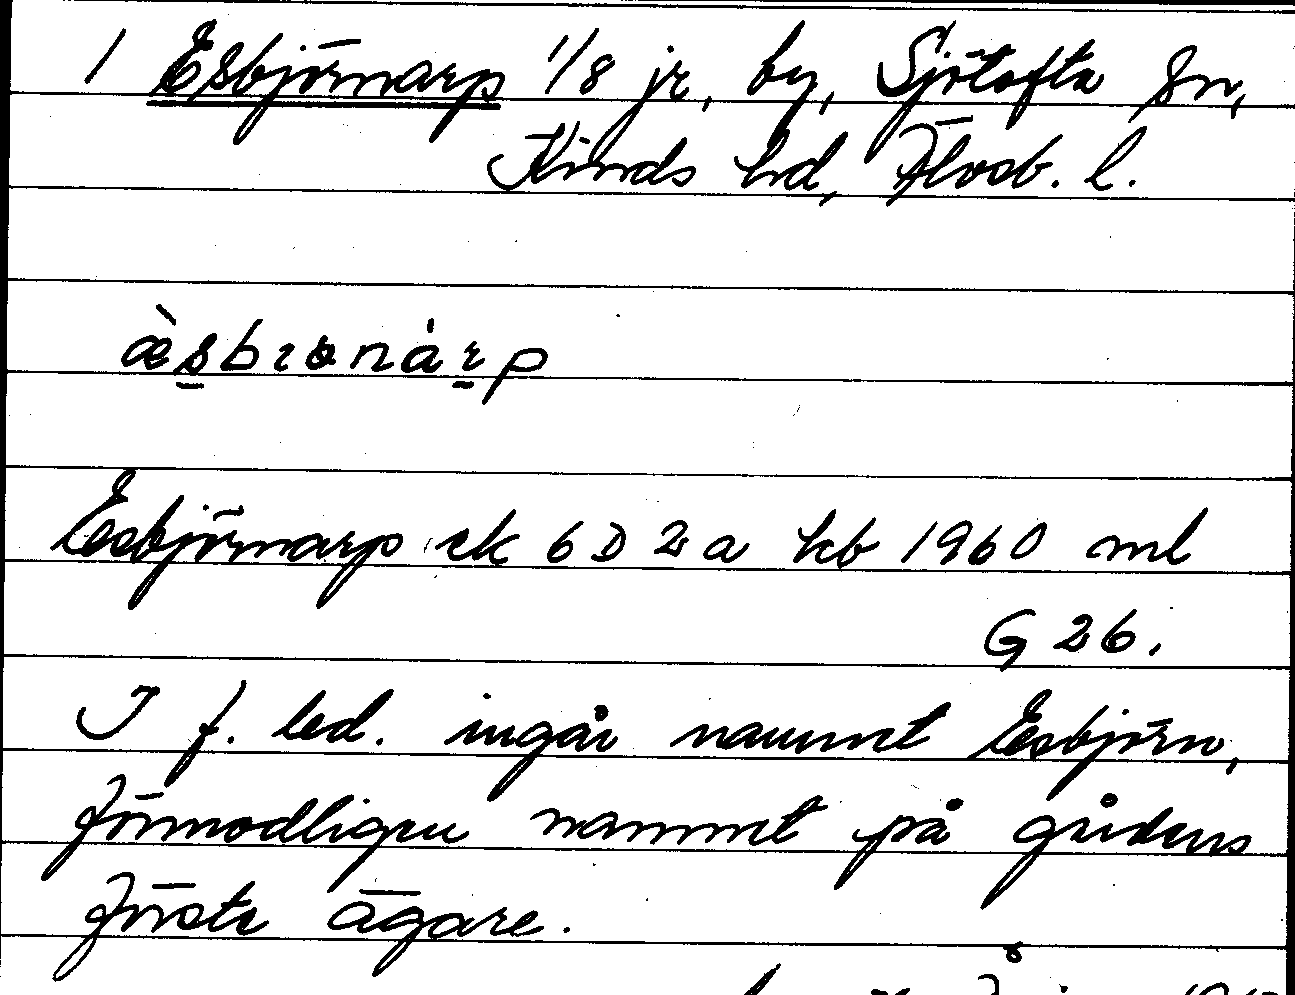 1 Esbjörnarp 1/8 jr, by, Sjötofta sn,
Kinds hd, Älvsb. l.
æ̀sbɩɵnȧrp
Esbjörnarp ek 6 D 2 a hb 1960 ml
G 26.
I f. led. ingår namnet Esbjörn,
förmodligen namnet på gårdens
förste ägare.